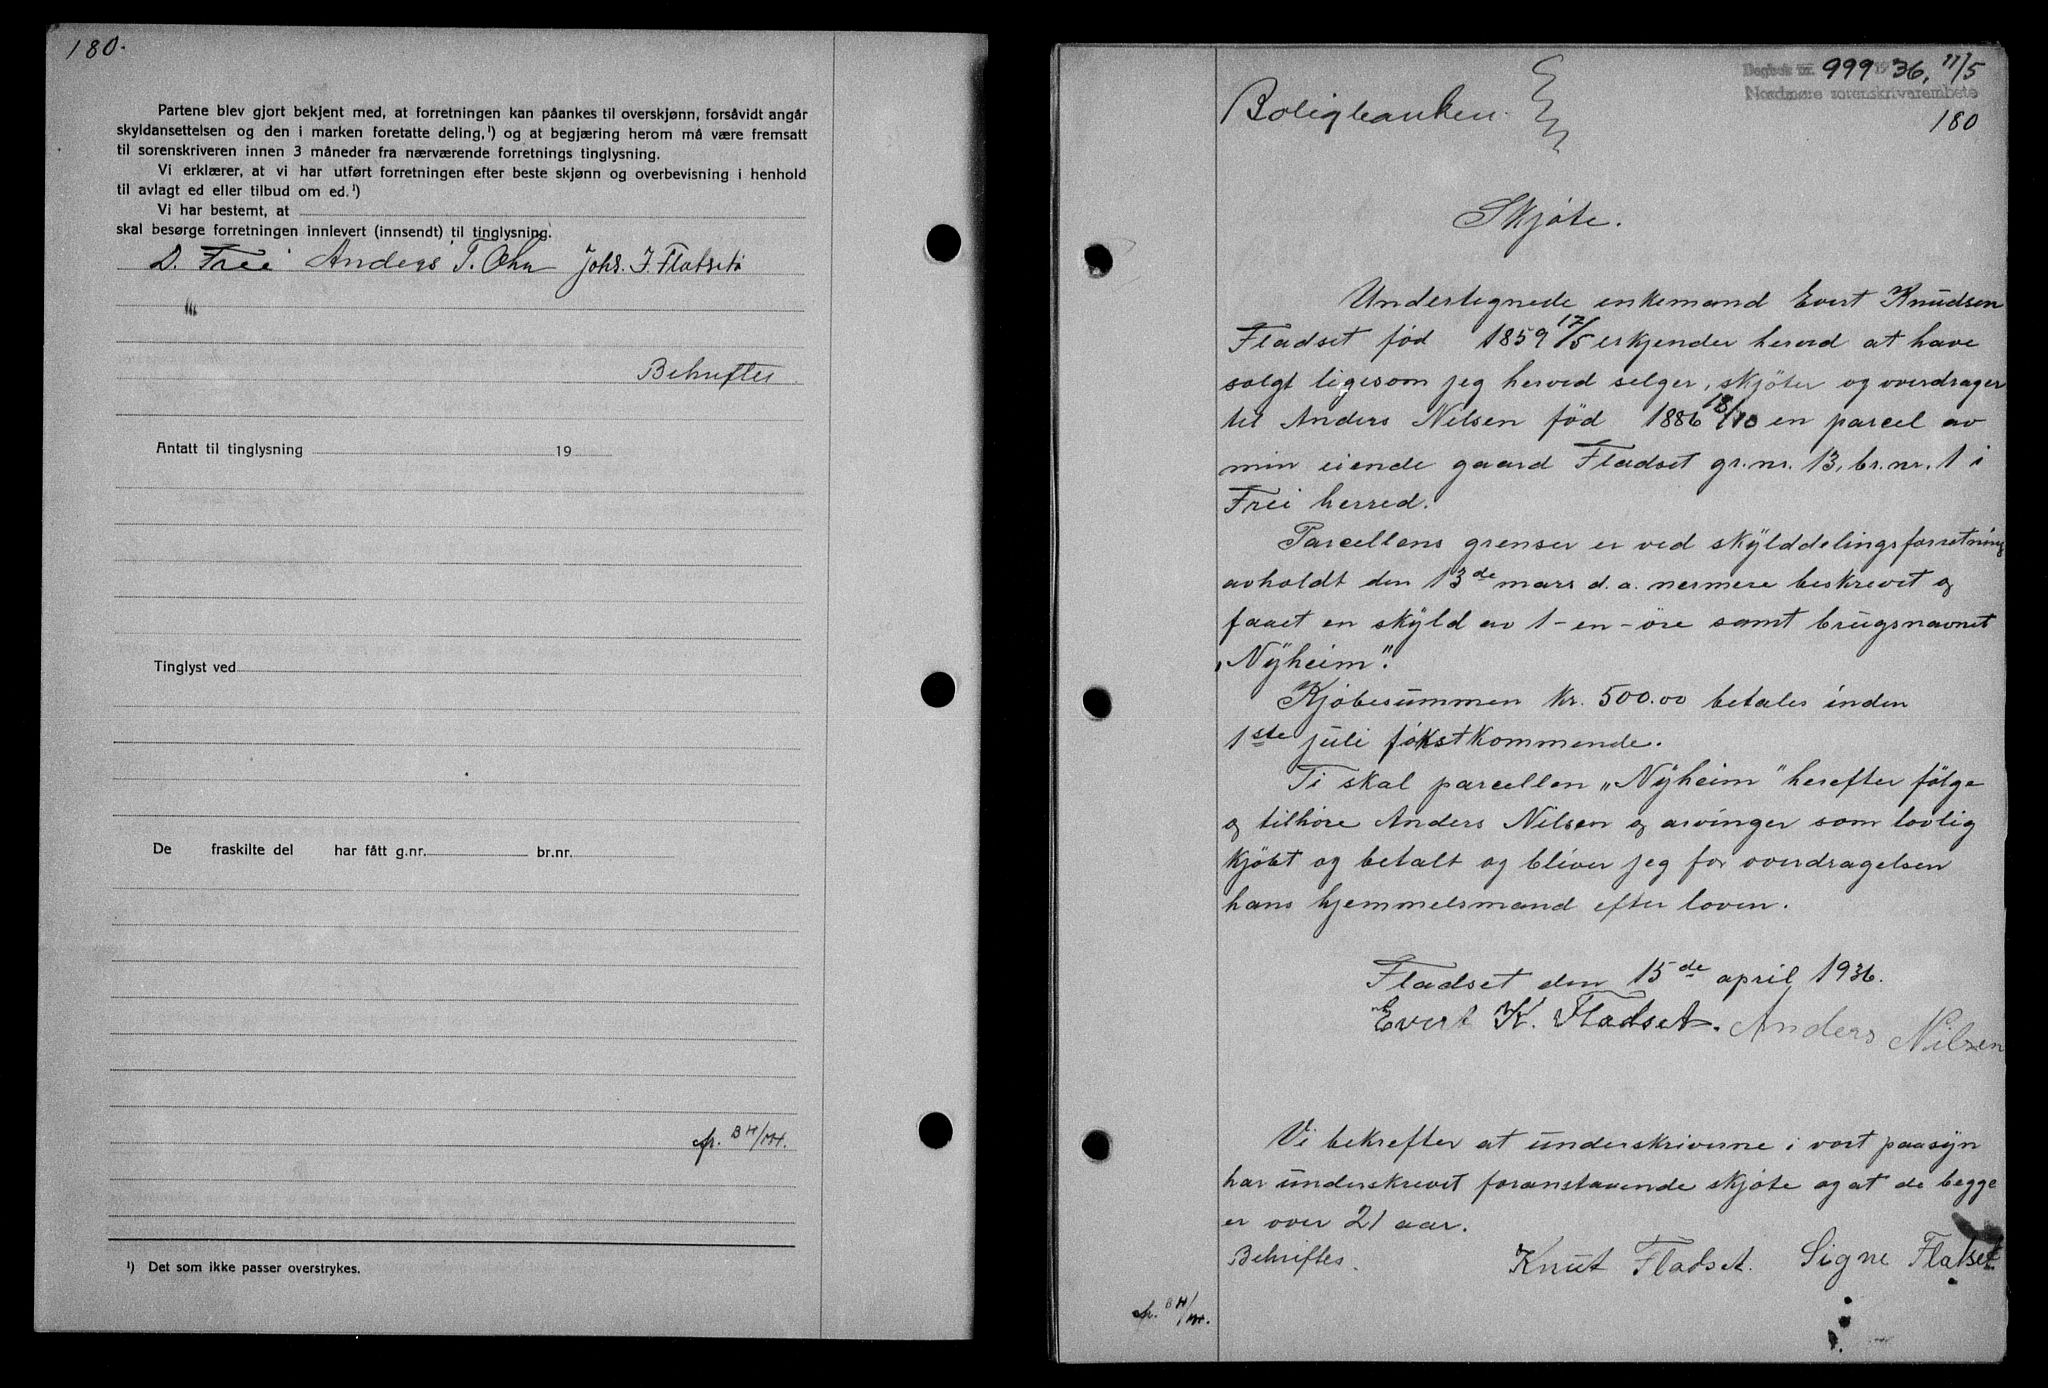 180.
Partene blev gjort bekjent med, at forretningen kan påankes til overskjønn, forsåvidt angår
skyldansettelsen og den i marken foretatte deling,¹) og at begjæring herom må være fremsatt
til sorenskriveren innen 3 måneder fra nærværende forretnings tinglysning.
Vi erklærer, at vi har utført forretningen efter beste skjønn og overbevisning i henhold
til avlagt ed eller tilbud om ed.¹)
Vi har bestemt, at
skal besørge forretningen innlevert (innsendt) til tinglysning.
D. Frei Anders T. Ohr Johs. J. Flatset
Bekreftes
Antatt til tinglysning 19
Tinglyst ved
De fraskilte del har fått g.nr. br.nr.
¹) Det som ikke passer overstrykes.
Dagbok nr. 999 1936, 11/5
Nordmøre sorenskrivarembete
Boligbanken.
180
Skjöte.
Undertegnede enkemand Evert Knudsen
Fladset föd 1859 17/5 erkjender herved at have
solgt ligesom jeg herved selger, skjöter og overdrager
til Anders Nilsen föd 1886 18/10 en parcel av
min eiende gaard Fladset gr.nr. 13, br.nr. 1 i
Frei herred.
Parcellens grenser er ved skylddelingsforretning
avholdt den 13de mars d.a. nermere beskrevet og
faaet en skyld av 1-en-öre samt brugsnavnet
„Nyheim".
Kjöbesummen kr. 500.00 betales inden
1ste juli förstkommende.
Ti skal parcellen „Nyheim" herefter fölge
og tilhöre Anders Nilsen og arvinger som lovlig
kjöbt og betalt og bliver jeg for overdragelsen
hans hjemmelsmand efter loven.
Fladset den 15de april 1936.
Evert K. Fladset. Anders Nilsen
Vi bekrefter at underskriverne i vort paasyn
har underskrevet foranstaaende skjöte og at de begge
er over 21 aar.
Bekreftes. Knut Fladset. Signe Flatset